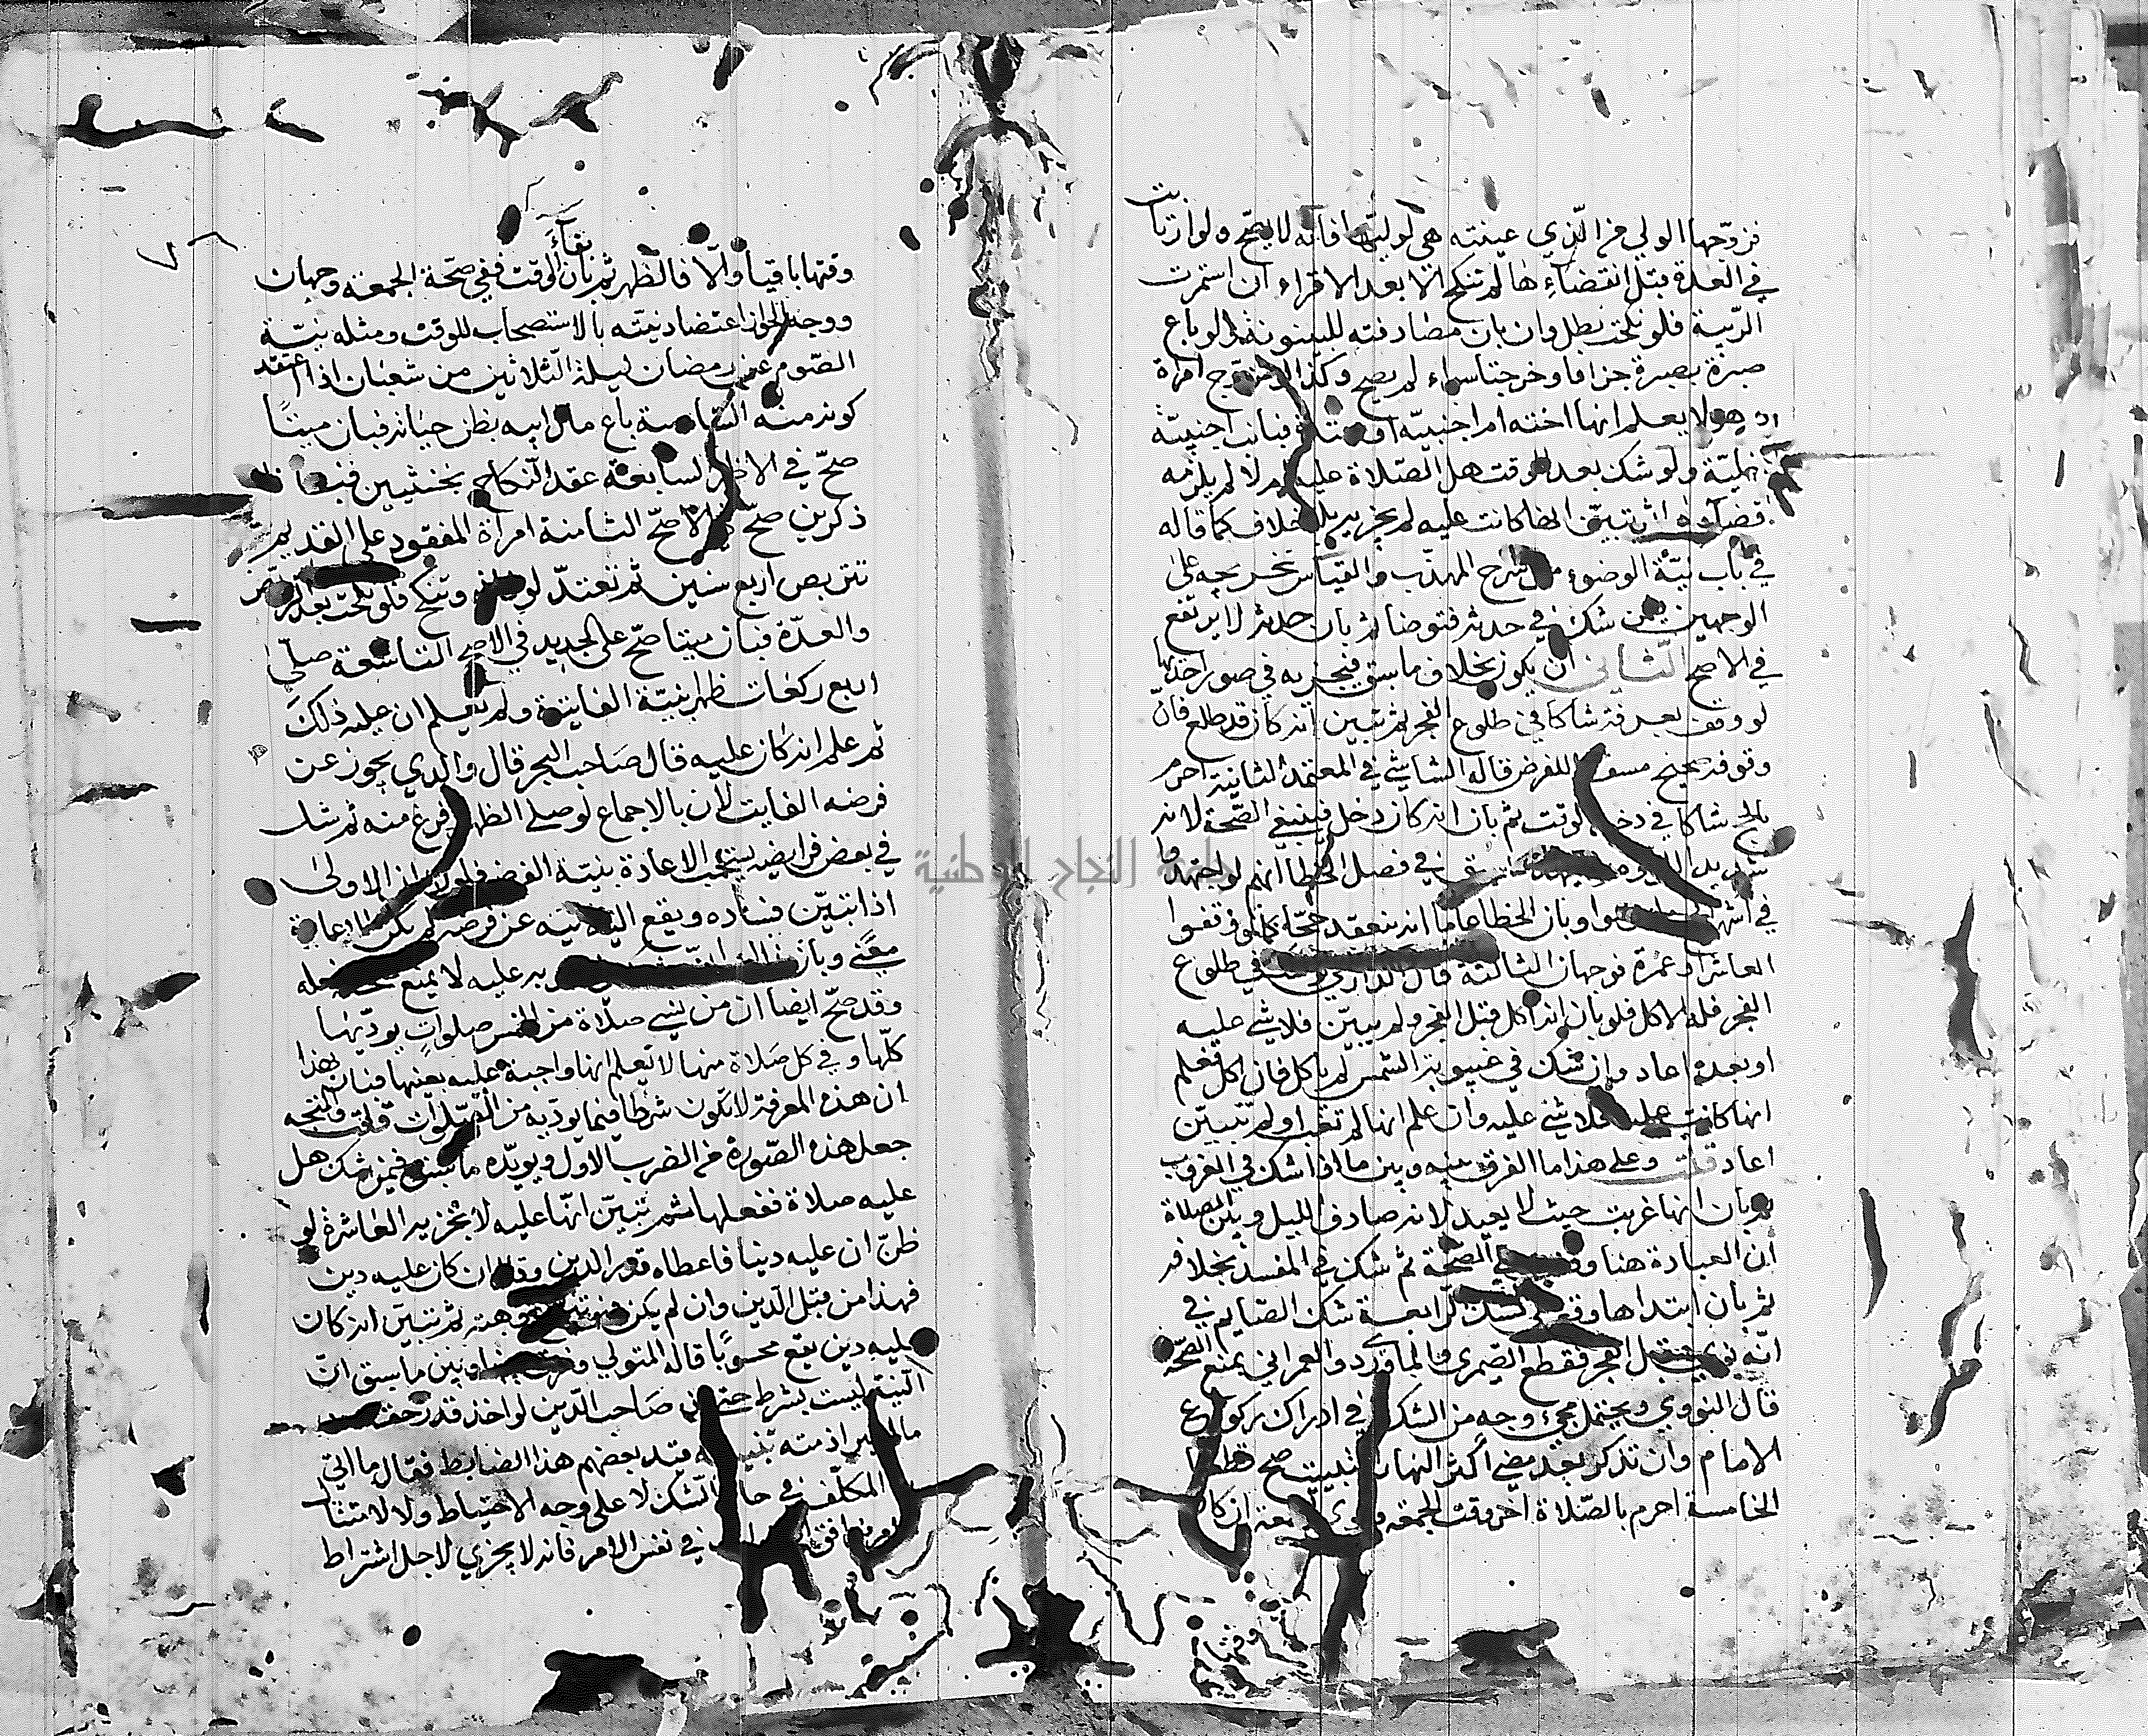 فزوجها الولي من الذي عينته هي لوليها فانه لا يصح ولو ارتابت
في العدة قبل انقضاءها لم تنكح الا بعد الاقراء ان استمرت
الريبة فلو نكحت بطل وان بان مصادفته للبينونة ولو باع
صبرة بصبرة جزافا وخرجتا سواء لم يصح وكذا لو تزوج امراة
وهو لا يعلم انها اخته ام اجنبية او معتدة فبانت اجنبية
خلية ولو شك بعد الوقت هل الصلاة عليه ام لا لم يلزمه
قضاؤه تبين انها كانت عليه لم يجزيه بلا خلاف كما قاله
في باب نية الوضوء من شرح المهذب والقياس تخريجه على
الوجهين فمن شك في حدثه فتوضا ثم بان حدثه لا يرتفع
في الاصح الثاني ان يكون بخلاف ما سبق فيجزيه في صور احدها
لو وقف بعرفة شاكا في طلوع الفجر ثم تبين انه كان قد طلع فان
وقوفه صحيح مسقط للفرض قاله الشاشي في المعتمد الثانية احرم
بالحج شاكا في دخول الوقت ثم بان انه كان دخل فينبغي الصحة لانه
في فصل الخطا انهم لو اجتهدوا
في اشهر وبان الخطا عاما انه ينعقد حجه كما لو وقفوا
العاشر او عمرة فوجهان الثالثة قال الدارمي شك في طلوع
الفجر فله الاكل فلو بان انه اكل قبل الفجر ولم يبين فلا شي عليه
او بعده اعاد وان شك في غيبوبة الشمس لم ياكل فان اكل فعلم
انها كانت عليه فلا شي عليه وان علم انها لم تغب او لم تتبين
اعاد قلت وعلى هذا ما الفرق بينه وبين ما اذا شك في الغروب
ثم بان انها غربت حيث لا يعيد لانه صادف الليل وبين الصلاة
ان العبادة هنا وقعت في الصحة ثم شك في المفسد بخلافه
ثم بان ابتداها وقع في الشك الرابعة شك الصايم في
انه نوى قبل الفجر فقطع الصيمري والماوردي والعمراني يمنع الصحة
قال النووي ويحتمل مجئ وجه من الشك في ادراك ركوع
الامام وان تذكر بعد مضي اكثر النهار التبييت صح قطعا
الخامسة احرم بالصلاة اخر وقت الجمعة ونوى الجمعة ان كان
وقتها
بقاء
وقتها باقيا والا فالظهر ثم بان الوقت ففي صحة الجمعة وجهان
ووجه الجواز اعتضاد نيته بالاستصحاب للوقت ومثله نية
الصوم عن رمضان ليلة الثلاثين من شعبان اذا اعتقد
كونه منه السادسة باع مال ابيه بظن حياته فبان ميتا
صح في الاظهر السابعة عقد النكاح بخنثيين فبانا
ذكرين صح في الاصح الثامنة امراة المفقود على القديم
تتربص اربع سنين ثم تعتد لوفاته وتنكح فلو نكحت بعد التربص
والعدة فبان ميتا صح على الجديد في الاصح التاسعة صلى
اربع ركعات ظهر بنية الفايتة ولم يعلم ان عليه ذلك
ثم علم انه كان عليه قال صاحب البحر قال والدي يجوز عن
فرضه الفايت لان بالاجماع لو صلى الظهر وفرغ منه ثم شك
في بعض فرايضه يستحب الاعادة بنية الفرض فلولا ان الاولى
اذا تبين فساده ويقع الثانية عن فرضه لم يكن للاعادة
معنى وبان به عليه لا يمنع صحة فعله
وقد صح ايضا ان من نسي صلاة من الخمس صلوات يوديها
كلها وفي كل صلاة منها لا تعلم انها واجبة عليه بعينها فبان بهذا
ان هذه المعرفة لا تكون شرطا فيما يوديه من الصلوات قلت والمتجه
جعل هذه الصورة من الضرب الاول ويويده ما سبق فيمن شك هل
عليه صلاة ففعلها ثم تبين انها عليه لا تجزيه العاشرة لو
ظن ان عليه دينا فاعطاه قدر الدين وقال ان كان عليه دين
فهذا من قبل الدين وان لم يكن فهو هبة ثم تبين انه كان
عليه دين يقع محسوبا قاله المتولي وفرق بينه وبين ما سبق ان
النية ليست بشرط حتى ان صاحب الدين لو اخذ قدر حقه
ذمته تنبيه قيد بعضهم هذا الضابط فقال ما اتى
المكلف في حال الشك لا على وجه الاحتياط ولا لامتثال
في نفس الامر فانه لا يجزي لاجل اشتراط